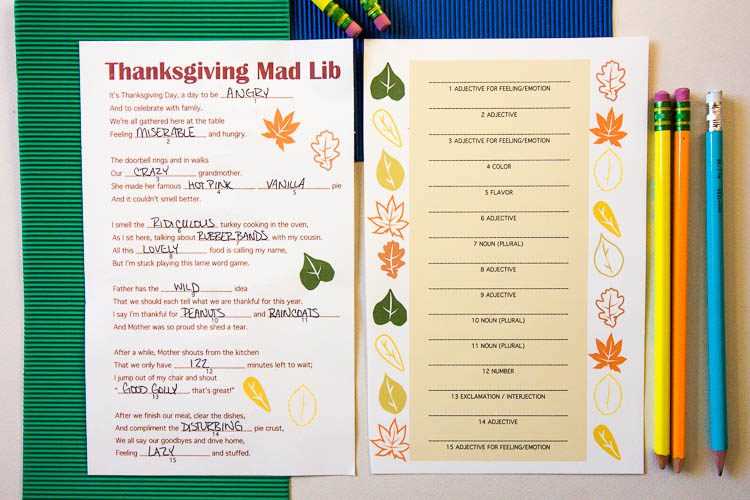 Thanksgiving Mad Lib
It's Thanksgiving Day, a day to be ANGRY
1
And to celebrate with family.
We're all gathered here at the table
Feeling MISERABLE and hungry.
2
The doorbell rings and in walks
Our CRAZY grandmother.
3
She made her famous HOT PINK VANILLA pie
4 5
And it couldn't smell better.
I smell the RIDICULOUS turkey cooking in the oven,
As I sit here, talking about RUBBER BANDS with my cousin.
All this LOVELY food is calling my name,
But I'm stuck playing this lame word game.
Father has the WILD idea
That we should each tell what we are thankful for this year.
I say I'm thankful for PEANUTS and RAINCOATS
10 11
And Mother was so proud she shed a tear.
After a while, Mother shouts from the kitchen
That we only have 122 minutes left to wait;
12
I jump out of my chair and shout
"GOOD GOLLY that's great!"
13
After we finish our meal, clear the dishes,
And compliment the DISTURBING pie crust,
14
We all say our goodbyes and drive home,
Feeling LAZY and stuffed.
15
1 ADJECTIVE FOR FEELING/EMOTION
2 ADJECTIVE
3 ADJECTIVE FOR FEELING/EMOTION
4 COLOR
5 FLAVOR
6 ADJECTIVE
7 NOUN (PLURAL)
8 ADJECTIVE
9 ADJECTIVE
10 NOUN (PLURAL)
11 NOUN (PLURAL)
12 NUMBER
13 EXCLAMATION / INTERJECTION
14 ADJECTIVE
15 ADJECTIVE FOR FEELING/EMOTION